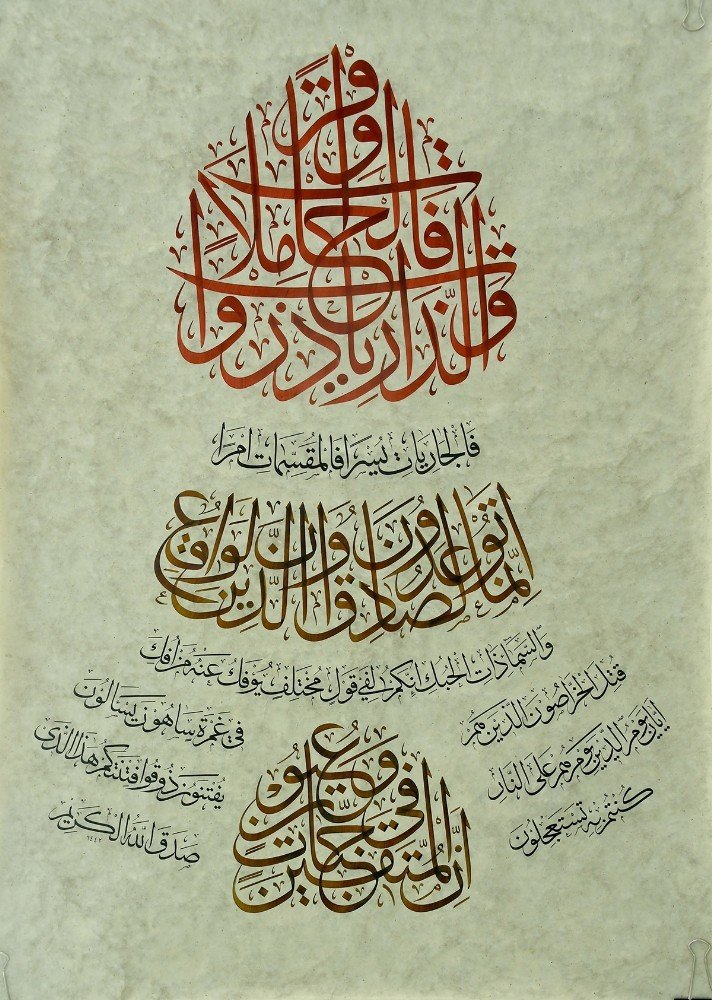 والذاريات ذروا فالحاملات وقرا
فالجاريات يسرا فالمقسمات امرا
إنما توعدون لصادق وان الدين لواقع
والسماء ذات الحبك انكم لفي قول مختلف يؤفك عنه من افك
قتل الخراصون الذين هم
في غمرة ساهون يسألون
أيان يوم الدين يوم هم على النار
يفتنون ذوقوا فتنتكم هذا الذي
كنتم به تستعجلون
إن المتقين في جنات وعيون
صدق الله الكريم